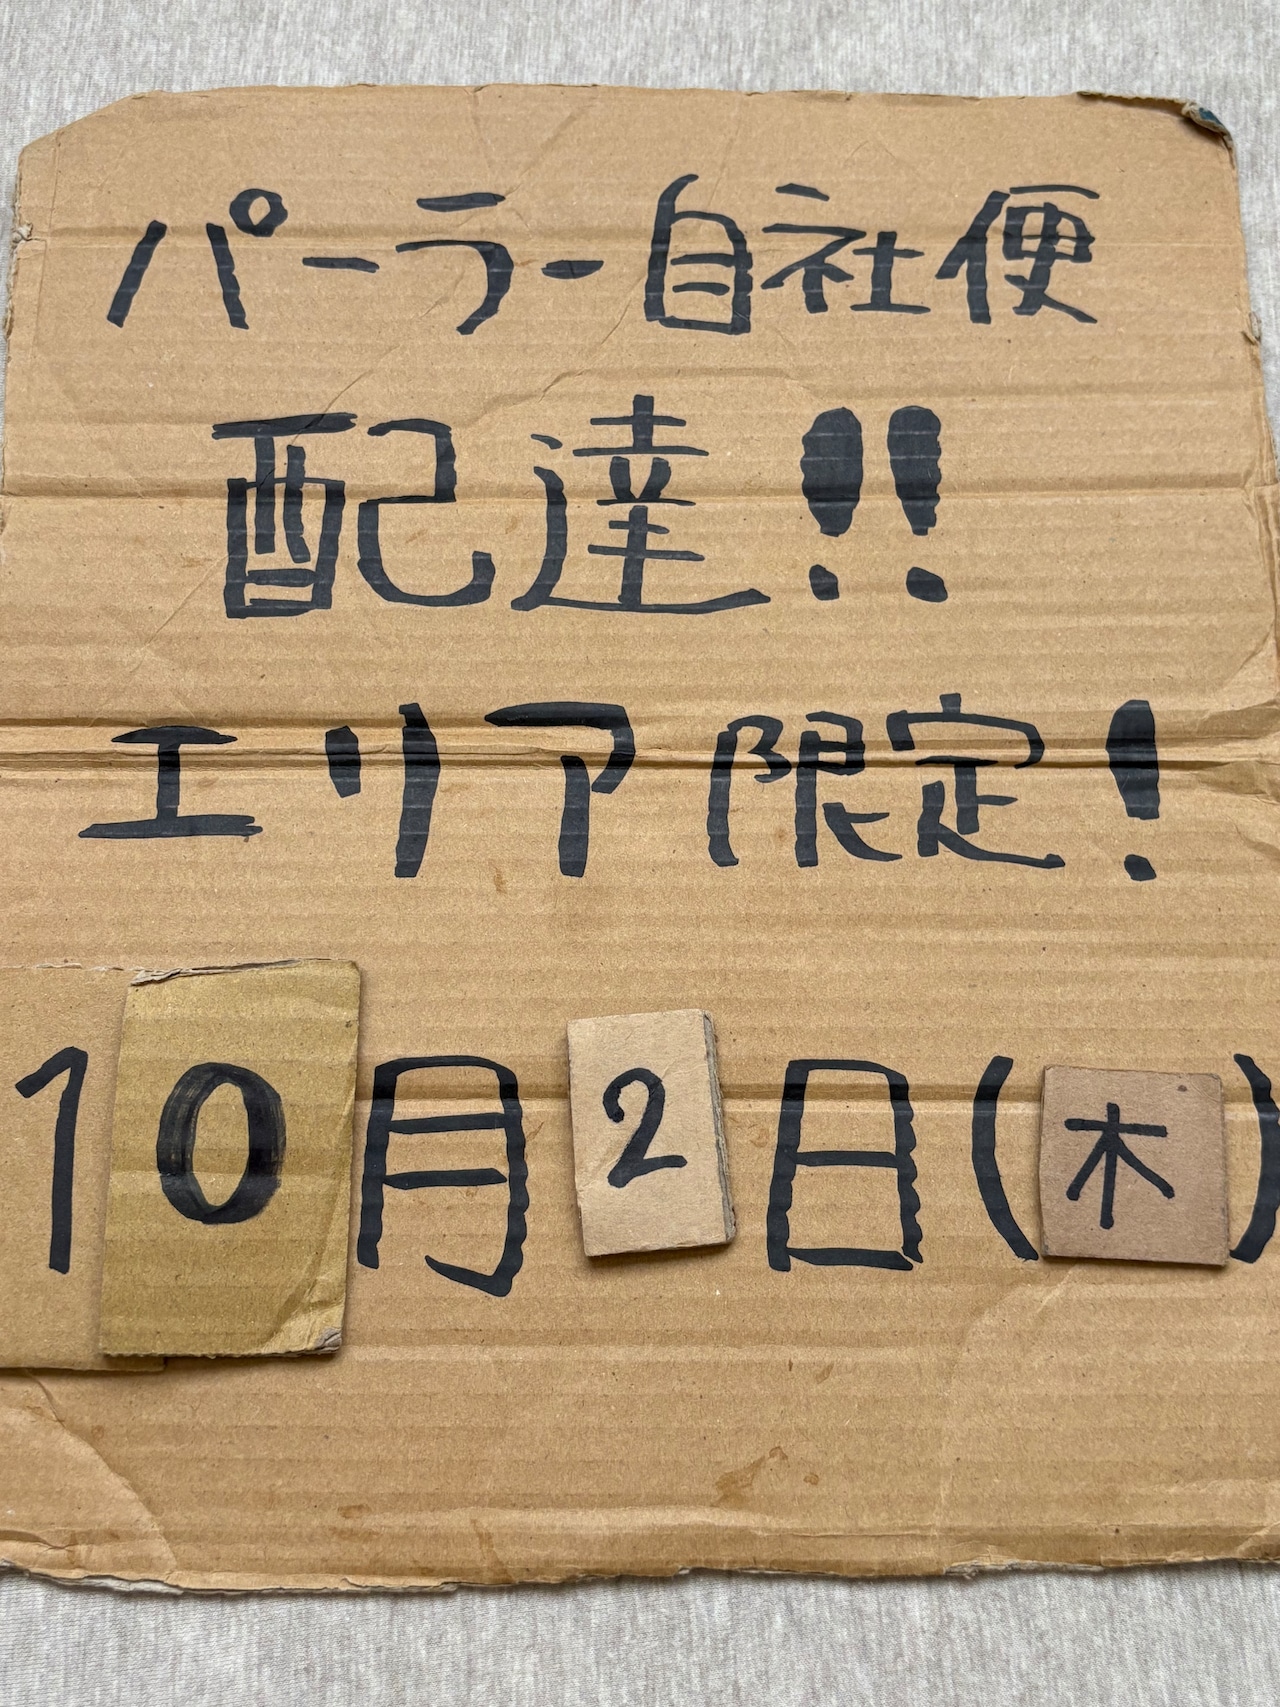 パーラー自社便
配達!!
エリア限定!
10月2日(木)